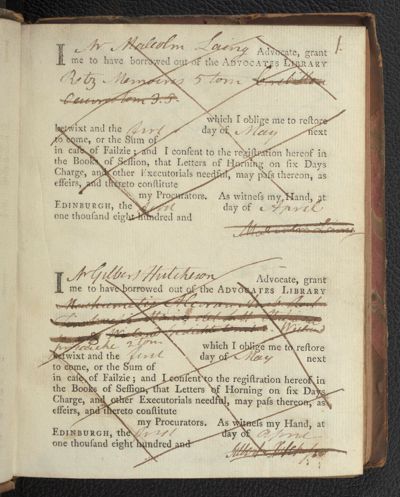 1.
I Mr Malcolm Laing Advocate, grant
me to have borrowed out of the ADVOCATES LIBRARY
Retz Memoires 5 tom
which I oblige me to reſtore
betwixt and the first day of May next
to come, or the Sum of
in caſe of Failzie; and I conſent to the regiſtration hereof in
the Books of Seſſion, that Letters of Horning on ſix Days
Charge, and other Executorials needful, may paſs thereon, as
effeirs, and thereto conſtitute
my Procurators. As witneſs my Hand, at
EDINBURGH, the first day of April
one thouſand eight hundred and
Malcolm Laing
I Mr Gilbert Hutcheson Advocate, grant
me to have borrowed out of the ADVOCATES LIBRARY
2 tom
which I oblige me to reſtore
betwixt and the first day of May next
to come, or the Sum of
in caſe of Failzie; and I conſent to the regiſtration hereof in
the Books of Seſſion, that Letters of Horning on ſix Days
Charge, and other Executorials needful, may paſs thereon, as
effeirs, and thereto conſtitute
my Procurators. As witneſs my Hand, at
EDINBURGH, the first day of April
one thouſand eight hundred and